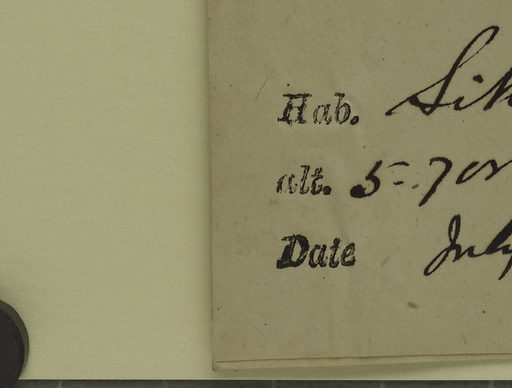 Hab. Sik
alt. 5-7000
Date July